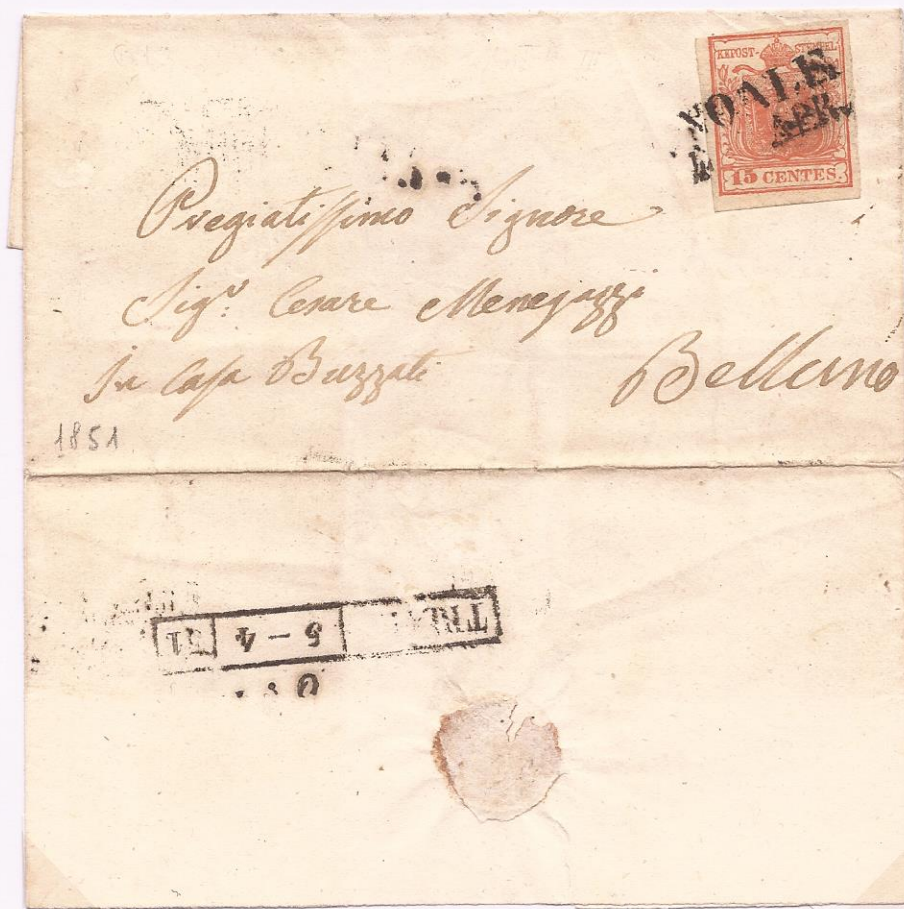 KKPOST-STEMPEL
NOALE
APR.
15 CENTES.
Pregiatissimo Signore
Sigr. Cesare Menegazzi
In Casa Buzzati
Belluno
1851
5-4